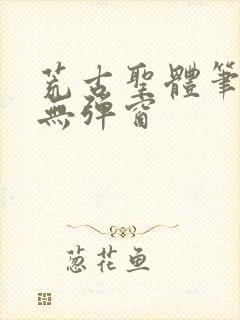 荒古聖體筆
無彈窗
葱花鱼